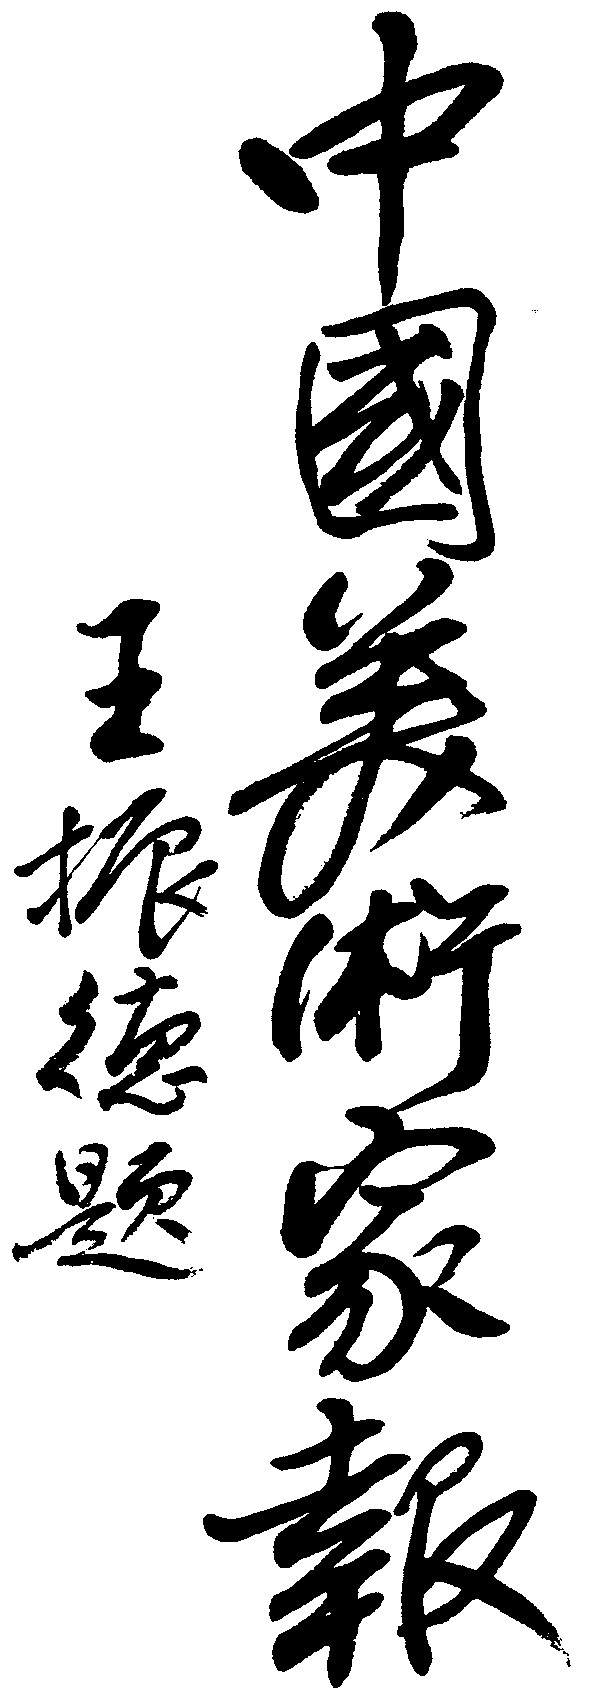 中國美術家報
王振德题